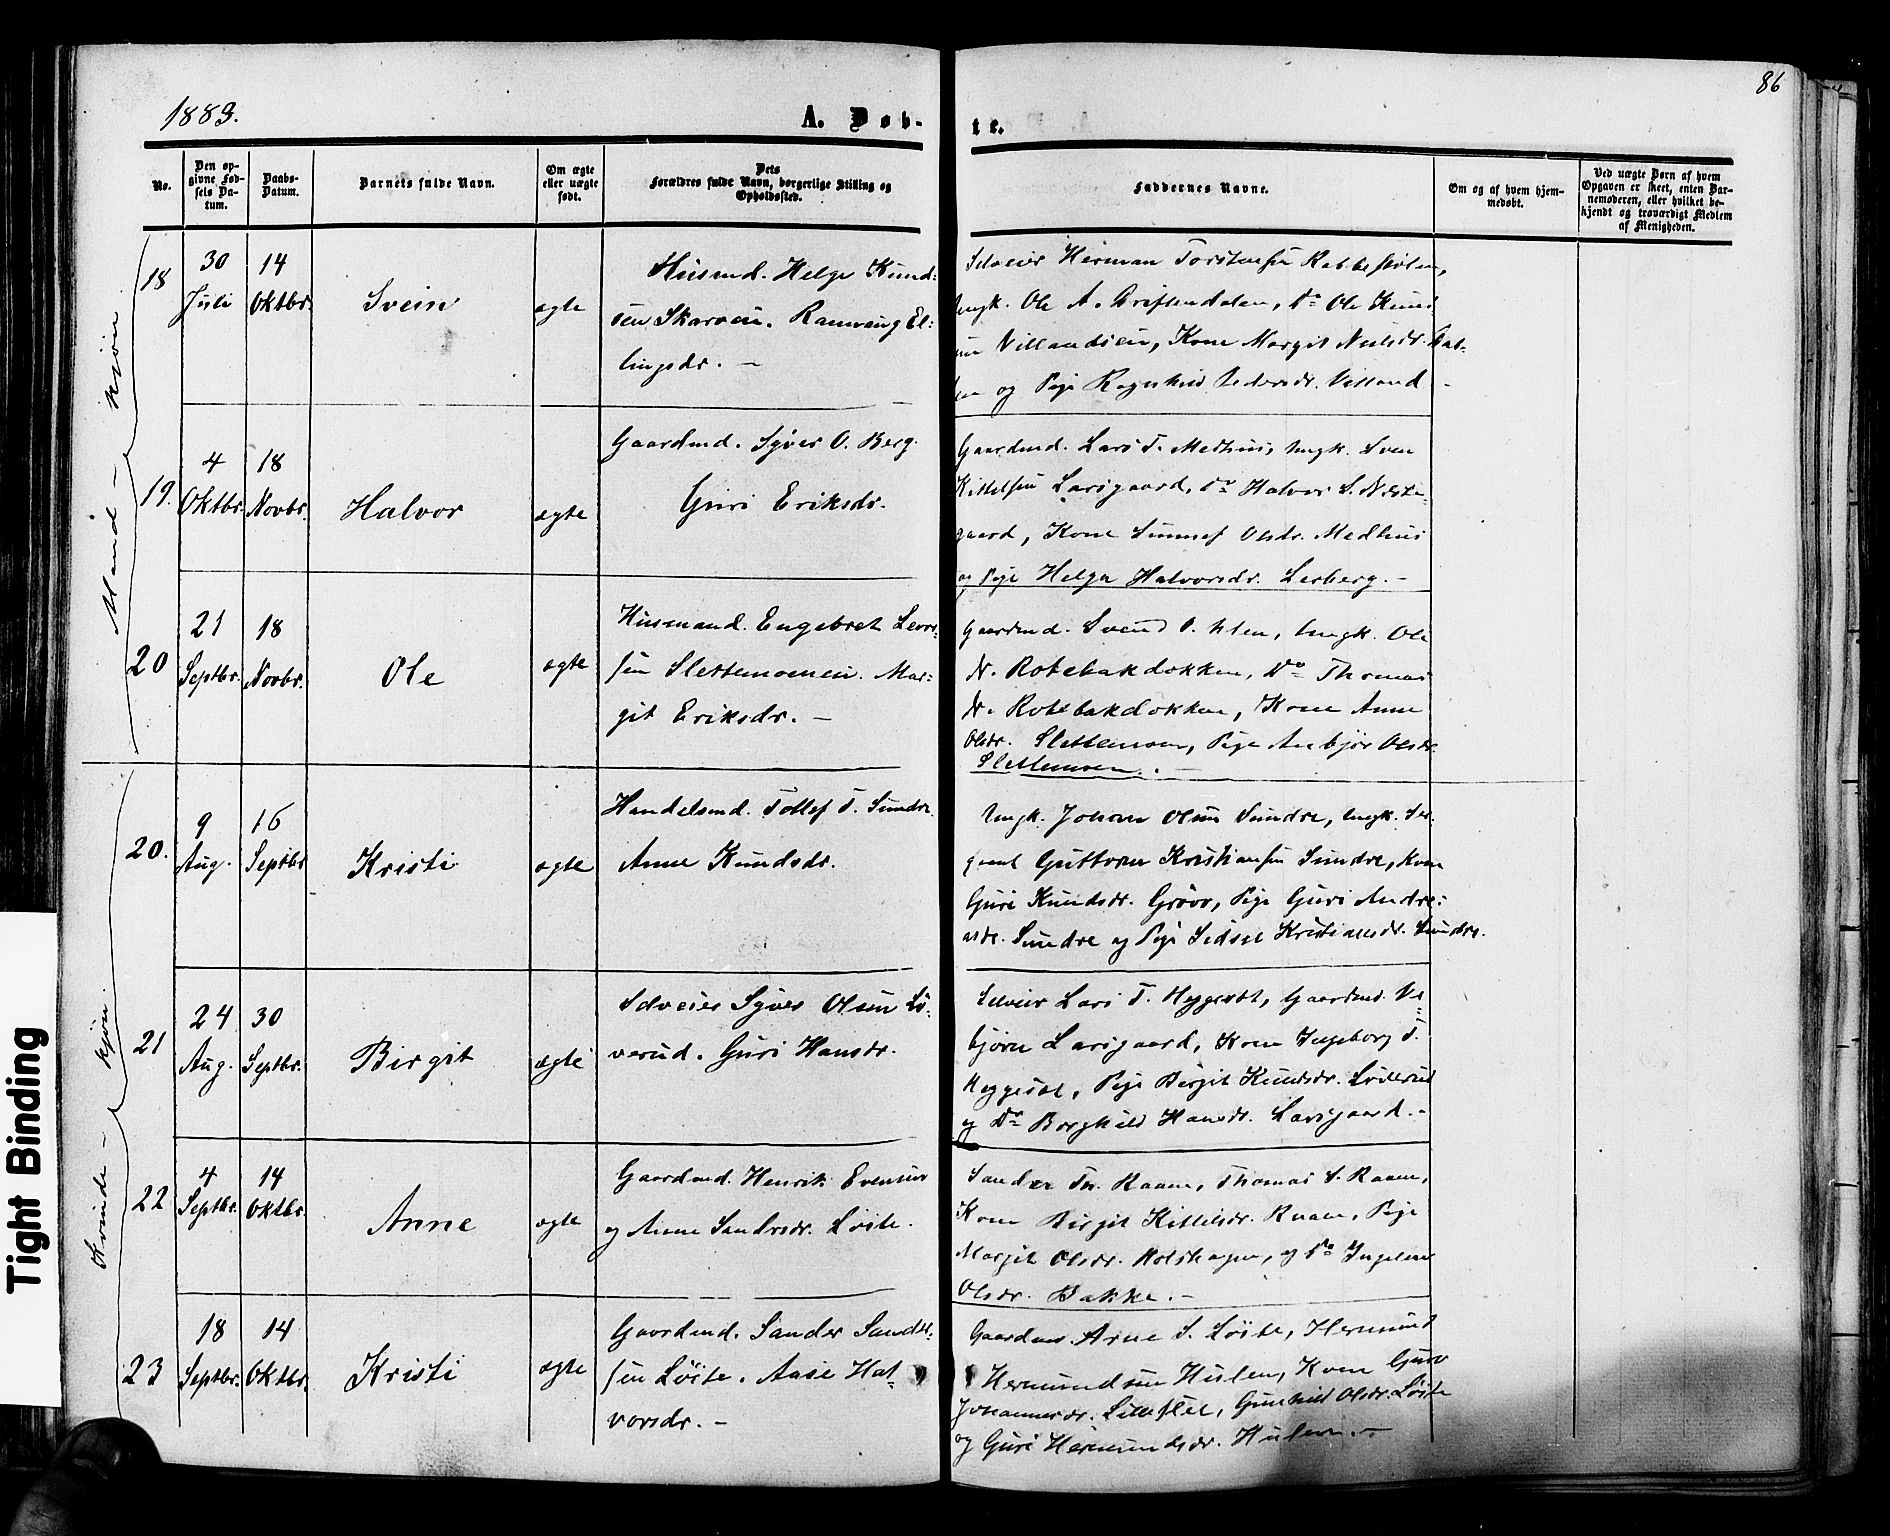 86
1883.
A. Døb-
te.
No.
Den op-
givne Fød-
sels Da-
tum.
Daabs-
Datum.
Barnets fulde Navn.
Om ægte
eller uægte
født.
Dets
Forældres fulde Navn, borgerlige Stilling og
Opholdssted.
Faddernes Navne.
Om og af hvem hjem-
medøbt.
Ved uægte Børn af hvem
Opgaven er skeet, enten Bar-
nemoderen, eller hvilket be-
kjendt og troværdigt Medlem
af Menigheden.
Mand-kjøn
18
30
Juli
14
Oktbr.
Svein
ægte
Husmd. Helge Knud-
sen Skarsen. Ranveug El-
lingsdr. —
Selveier Herman Torstensen Rabbestølen,
Ungk. Ole A. , Do Ole Knud
sen Villandsien, Kone Margit Nielsdr.
og Pige Ragnhild Pedersdr. Villand -
19.
4
Oktbr.
18
Novbr.
Halvor
ægte
Gaardmd. Syver O. Berg.
Guri Eriksdr.
Gaardmd. Lars T. Medhus, Ungk. Sven
Kittelsen Larsgaard, Do Halvor S. Neste-
gaard, Kone Sunnef Olsdr. Medhus
og Pige Helga Halvorsdr. Lerberg. -
20
21
Septbr.
18
Novbr.
Ole
ægte
Husmand. Engebret
sen Slettemoen. Mar-
git Eriksdr. —
Gaardmd. Svend O. , Ungk. Ole
N. Rotebakdokken, Do Thomas
N. Rotebakdokken, Kone Anne
Olsdr. Slettemoen, Pige Anbjør Olsdr.
Slettemoen. -
Kvinde-kjøn.
20.
9
Aug.
16
Septbr
Kristi
ægte
Handelsmd. Tollef T. Sundre.
Anne Knudsdr.
Ungk. Johan Olsen Sundre, Ungk. Ser-
gent Guttorm Kristiansen Sundre, Kone
Guri Knudsdr. Grøvo, Pige Guri Andre-
asdr. Sundre og Pige Sidsel Kristiansdr. Sundre.
21
24
Aug.
30
Septbr.
Birgit
ægte
Selveier Syver Olsen Lø-
verud. Guri Hansdr.
Selveier Lars T. Heggestøl, Gaardmd. Ve-
bjørn Larsgaard, Kone Ingeborg T.
Heggestøl, Pige Birgit Knudsdr. Løverud
og Do Borghild Hansdr. Larsgaard. -
22
4
Septbr.
14
Oktbr.
Anne
ægte
Gaardmd. Henrik Evensen
og Anne Sandersdr. Løite.
Sander Th. Raaen, Thomas S. Raaen,
Kone Birgit Kittelsdr. Raaen, Pige
Margit Olsdr. Holshagen, og Do Ingeleiv
Olsdr. Bakke. -
23
18
Septbr.
14
Oktbr.
Kristi
ægte
Gaardmd. Sander Sander-
sen Løite. Aase Hal-
vorsdr. —
Gaardm. Arne S. Løite, Hermund
Hermundsen Hulen, Kone Guro
Johannesdr. Lilleslet, Gunhild Olsdr. Løite
og Guri Hermundsdr. Hulen. —
Tight Binding